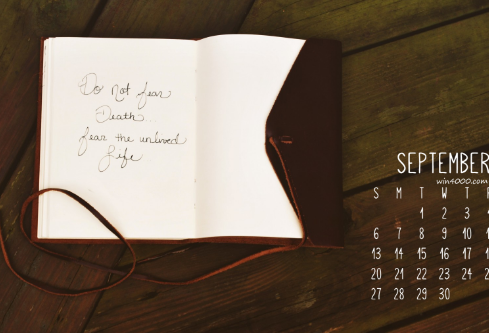 Do Not fear
Death..
fear the unlived
Life
SEPTEMBER
win4000.com
S M T W T F
1 2 3
6 7 8 9 10
13 14 15 16 17
20 21 22 23 24
27 28 29 30